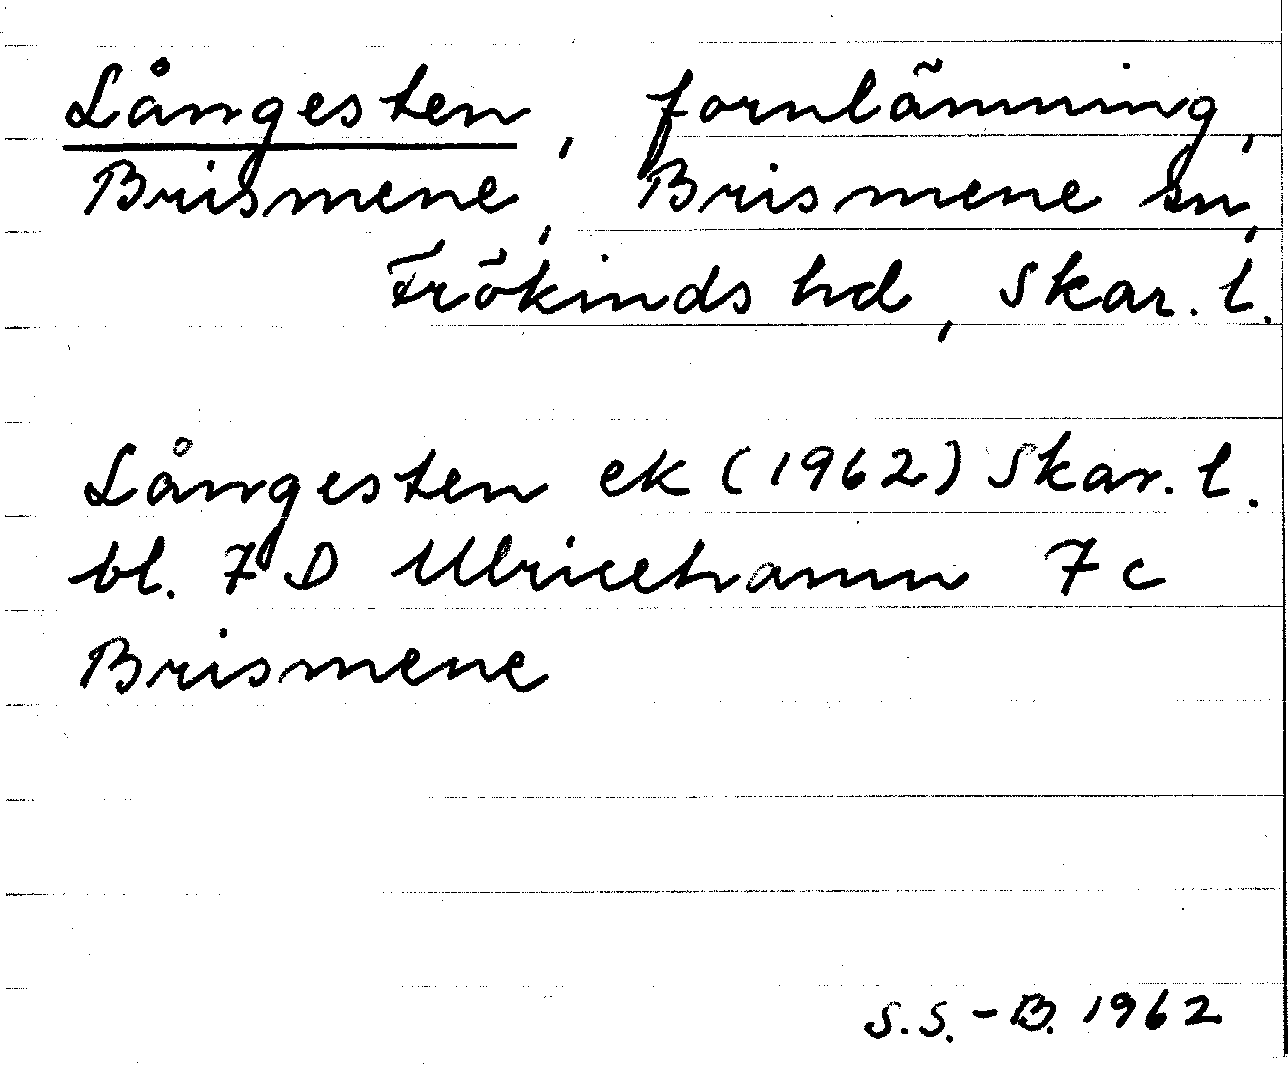 Långesten, fornlämning,
Brismene, Brismene sn,
Frökinds hd, Skar. l.
Långesten ek (1962) Skar. l.
bl. 7 D Ulricehamn 7 c
Brismene
S.S.-B. 1962